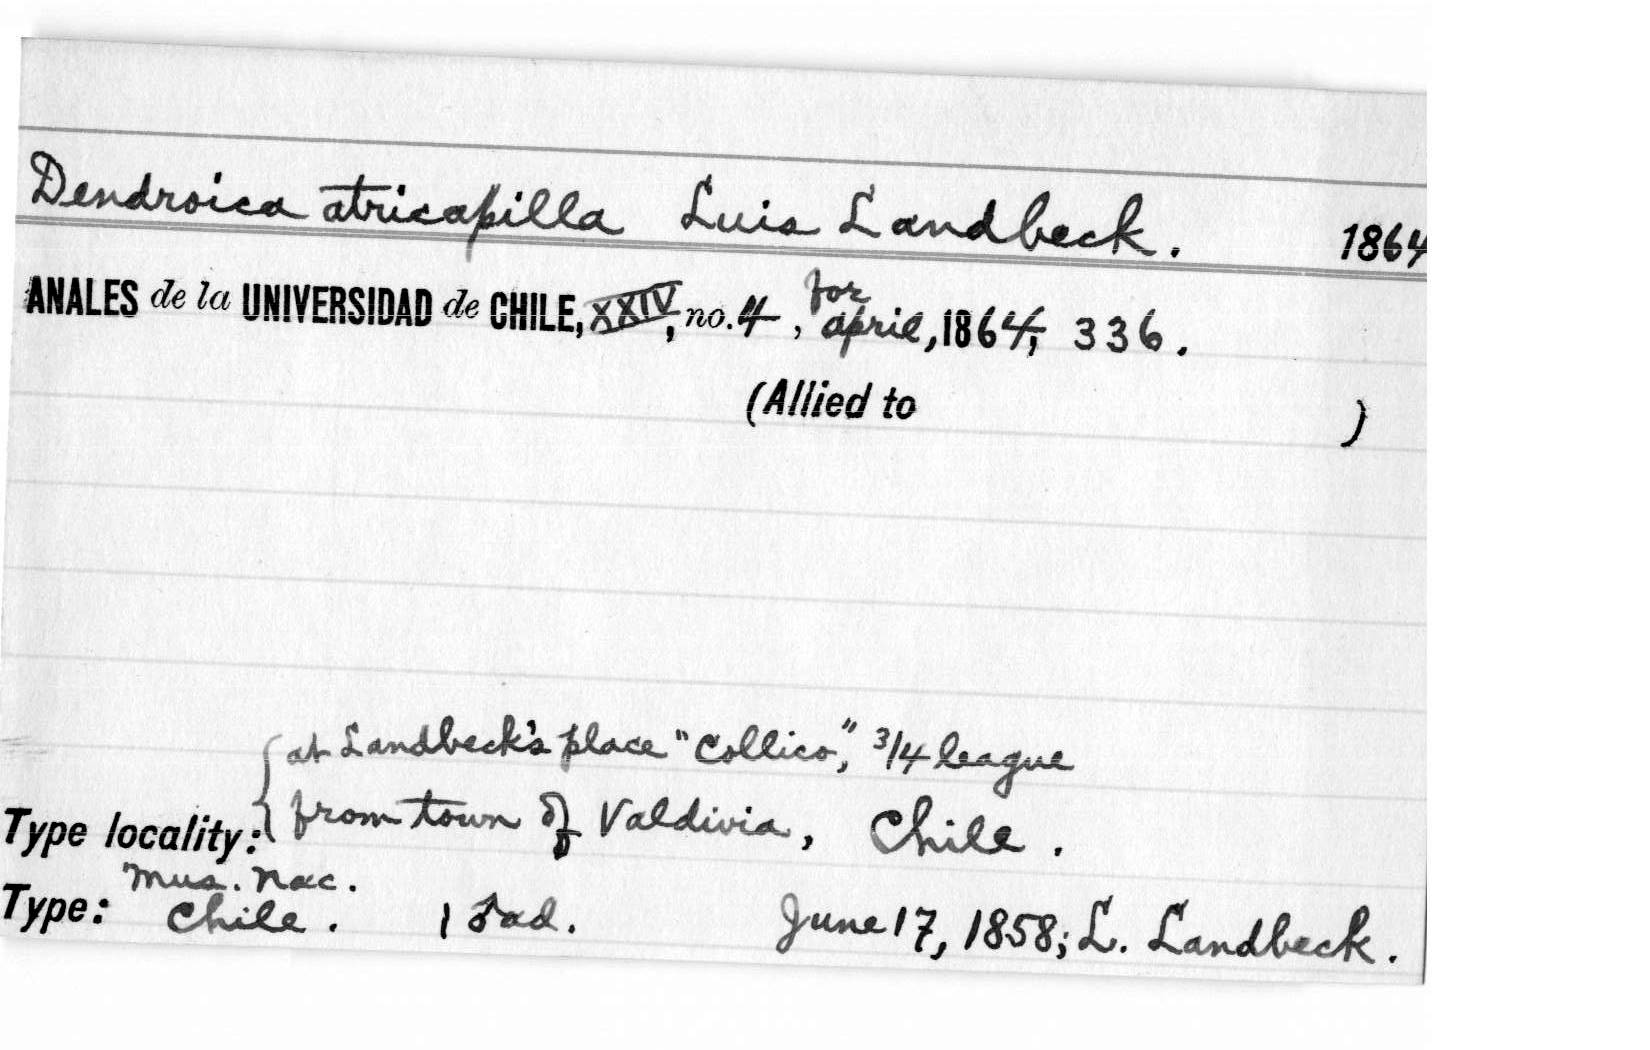 Dendroica atricapilla Luis Landbeck. 1864
ANALES de la UNIVERSIDAD de CHILE, XXIV, no. 4, for april, 1864, 336.
(Allied to )
at Landbeck's place "Collico," 3/4 league
Type locality: from town of Valdivia, Chile.
Mus. Nac.
Type: Chile. 1 ♂ ad. June 17, 1858; L. Landbeck.